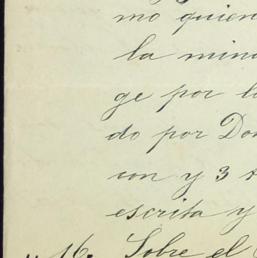 mo quien
la mina
ge por l
do por Don
con y 3
escrita y
16. Sobre el